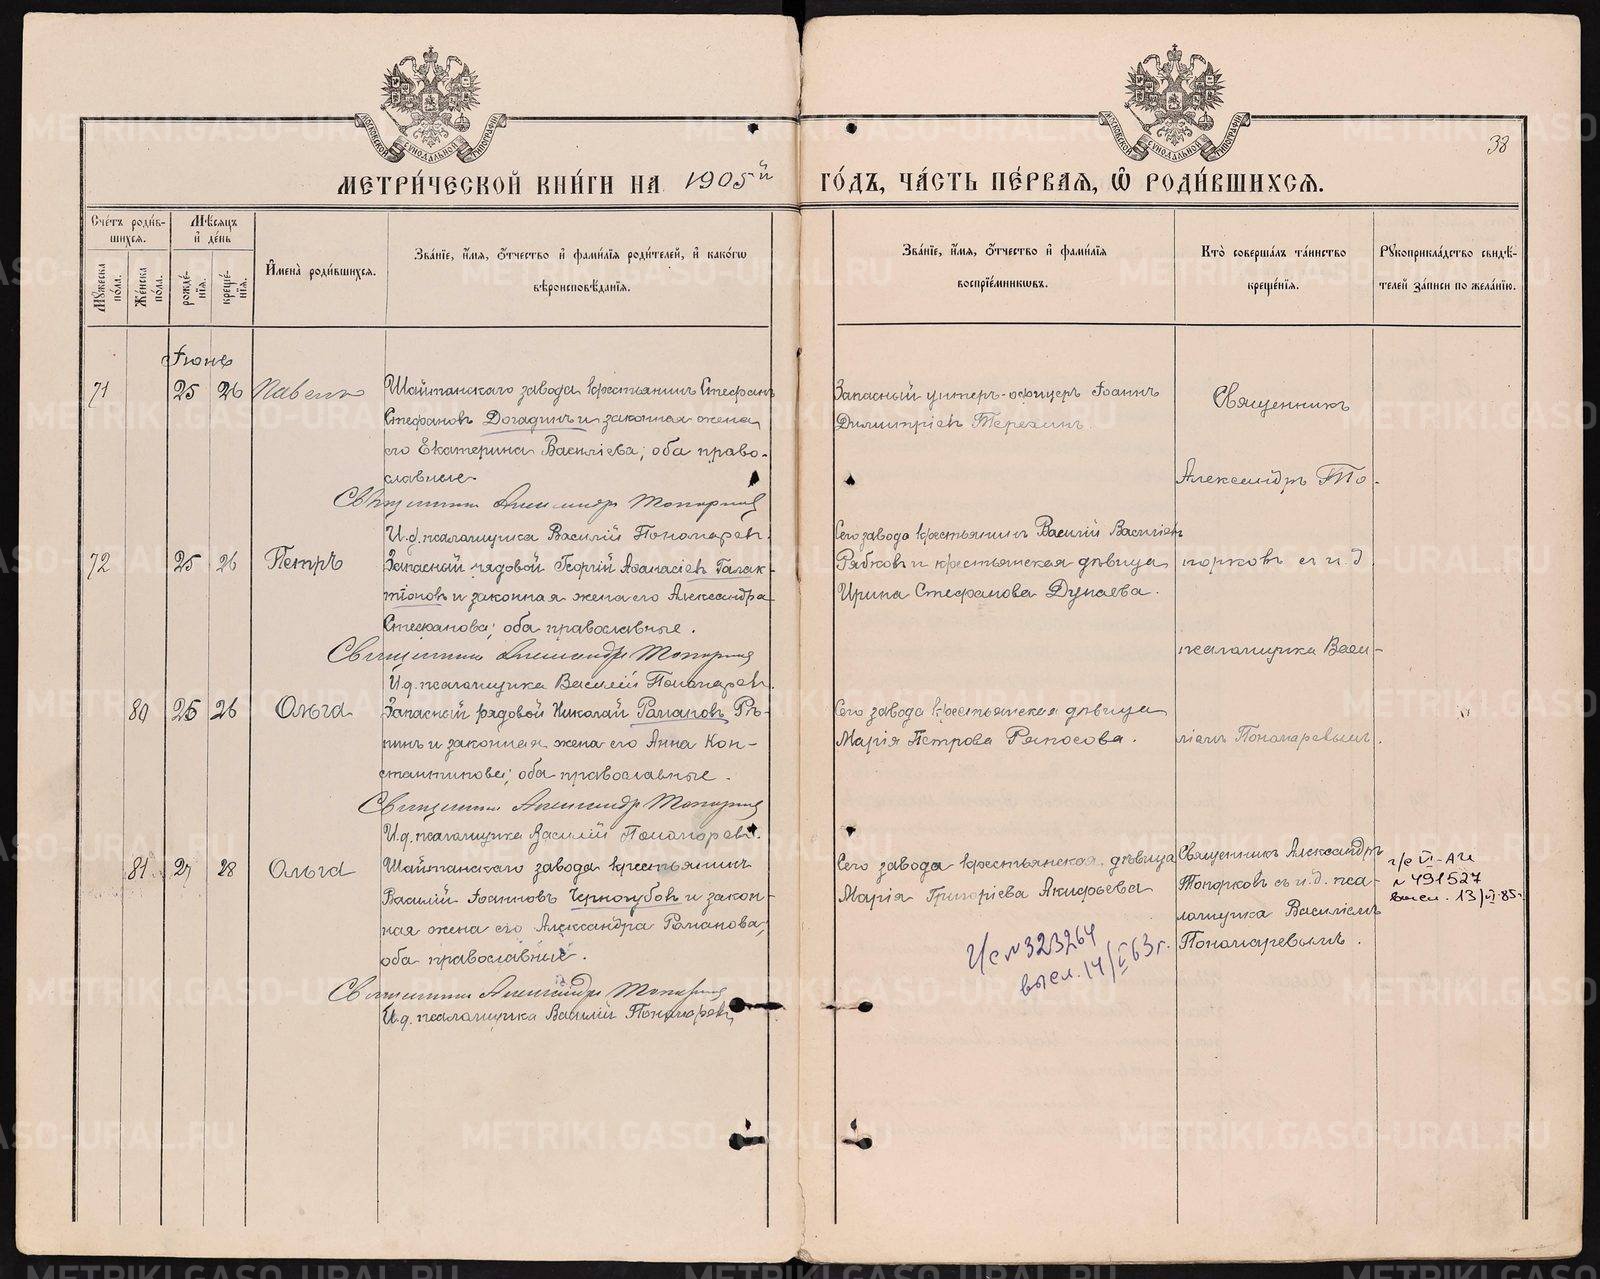 38
МОСКОВСКОЙ СѴНОДАЛЬНОЙ ТИПОГРАФІИ
МОСКОВСКОЙ СѴНОДАЛЬНОЙ ТИПОГРАФІИ
МЕТРИ́ЧЕСКОЙ КНИ́ГИ НА 1905й ГО́ДЪ, ЧА́СТЬ ПЕ́РВАѦ, Ѿ РОДИ́ВШИХСѦ.
Сче́тъ роди́в-
шихсѧ.
Мꙋ́жеска по́ла.
Же́нска по́ла.
Мѣ́сѧцъ
и҆ де́нь
рожде́-
нїѧ.
креще́-
нїѧ.
И҆мена̀ роди́вшихсѧ.
Зва́нїе, и҆́мѧ, ѻ҆́тчество и҆ фами́лїѧ роди́телей, и҆ како́гѡ
вѣроисповѣ́данїѧ.
Зва́нїе, и҆́мѧ, ѻ҆́тчество и҆ фами́лїѧ
воспрїе́мникѡвъ.
Кто̀ соверша́лъ та́инство
креще́нїѧ.
Рꙋкоприкла́дство свидѣ́-
телей за́писи по жела́нїю.
Іюнь
71 25 26 Павелъ
Шайтанскаго завода крестьянинъ Стефанъ
Стефановъ Догадинъ и законная жена
его Екатерина Васильева; оба право-
славные
Священникъ Александръ Топорковъ
И.д. псаломщика Василій Пономаревъ.
Запасный унтеръ-офицеръ Іоаннъ
Димитріевъ Терехинъ.
Священникъ
Александръ То-
порковъ съ и.д
псаломщика Васи-
ліемъ Пономаревымъ.
72 25 26 Петръ
Запасный рядовой Георгій Аѳанасіевъ Галак-
тіоновъ и законная жена его Александра
Стефанова; оба православные.
Священникъ Александръ Топорковъ
И.д. псаломщика Василій Пономаревъ.
Сего завода крестьянинъ Василій Васильевъ
Рябковъ и крестьянская дѣвица
Ирина Стефанова Дунаева.
80 25 26 Ольга
Запасный рядовой Николай Романовъ Рѣ-
пинъ и законная жена его Анна Кон-
стантинова; оба православные.
Священникъ Александръ Топорковъ
И.д. псаломщика Василій Пономаревъ.
Сего завода крестьянская дѣвица
Марія Петрова Ряпосова.
81 27 28 Ольга
Шайтанскаго завода крестьянинъ
Василій Іоанновъ Черногубовъ и закон-
ная жена его Александра Романова;
оба православные.
Священникъ Александръ Топорковъ
И.д. псаломщика Василій Пономаревъ
Сего завода крестьянская дѣвица
Марія Григоріева Акифьева
Священникъ Александръ
Топорковъ съ и.д. пса-
ломщика Василіемъ
Пономаревымъ.
г/с VI-АИ
№ 491527
высл. 13/VI-85г.
г/с №323264
высл. 14/I 63г.
METRIKI.GASO-URAL.RU